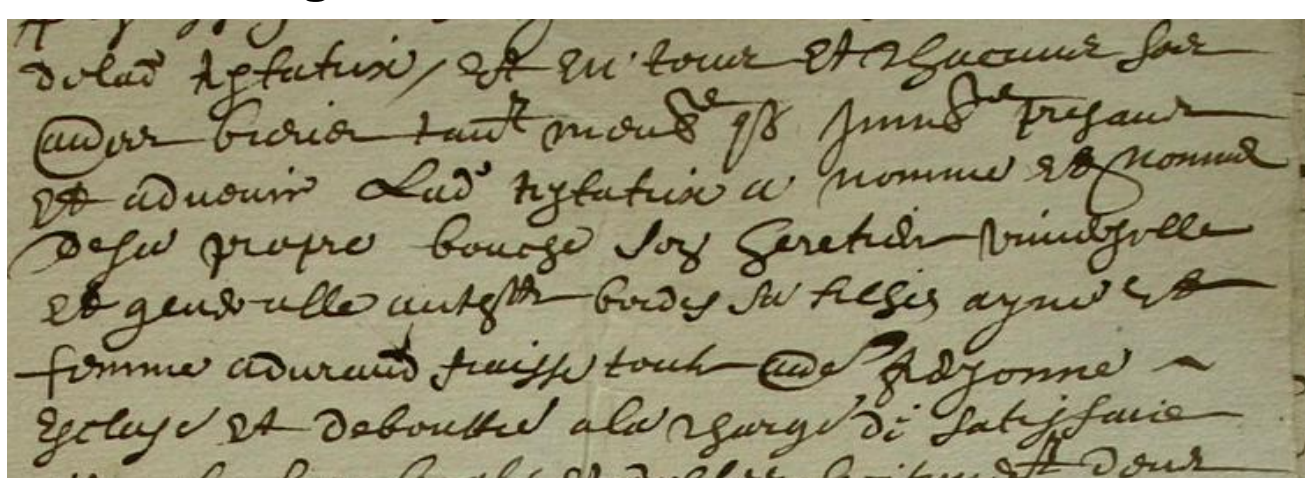 de lad testatrix / et en tous et chacuns ses
auĺtres biens tant meubles que immeubles presans
et advenir Lad testatrix a nomme et nomme
de sa propre bouche son heretier universelle
et generalle anthte bordes sa filhe aynee et
femme a durand fraisse toute aultre personne
excluse et deboutte a la charge de satisfaire